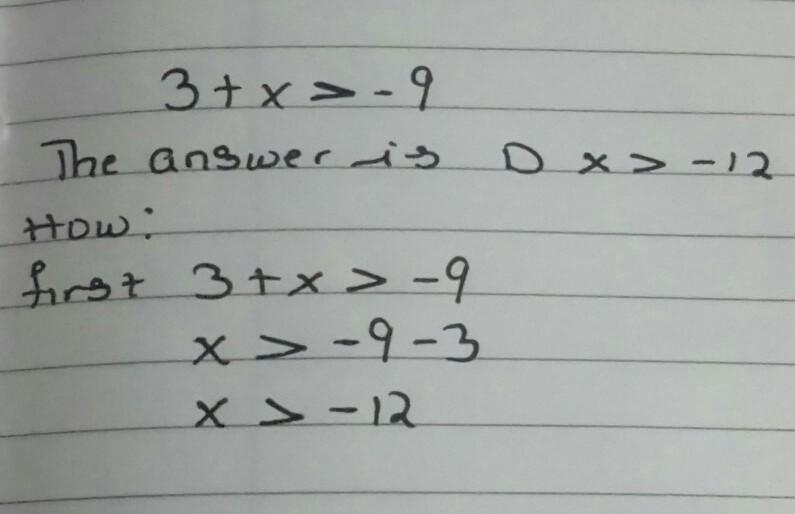 3 + x > -9
The answer is D x > -12
How:
first 3 + x > -9
x > -9 - 3
x > -12